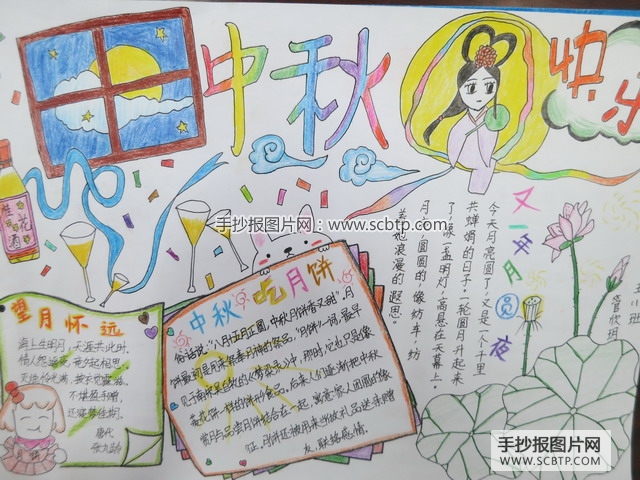 中秋
快乐
手抄报图片网：www.scbtp.com
桂花酒
望月怀远
海上生明月，天涯共此时。
情人怨遥夜，竟夕起相思。
灭烛怜光满，披衣觉露滋。
不堪盈手赠，
还寝梦佳期。
唐代
张九龄
月饼
中秋 吃月饼
俗话说："八月十五月正圆，中秋月饼香又甜"。月
饼最初是用来祭奉月神的祭品，"月饼"一词，最早
花一样的饼形食品，后来人们逐渐把中秋
赏月与品尝月饼结合在一起，寓意家人团圆的象
征。月饼还被用来当做礼品送亲赠
友，联络感情。
又一年月圆夜
今天月亮圆了，又是一个千里
共婵娟的日子。一轮圆月升起来
了，像一盏明灯，高悬在天幕上。
月，圆圆的，像纺车，纺
着她浪漫的遐思。
班
手抄报图片网
WWW.SCBTP.COM